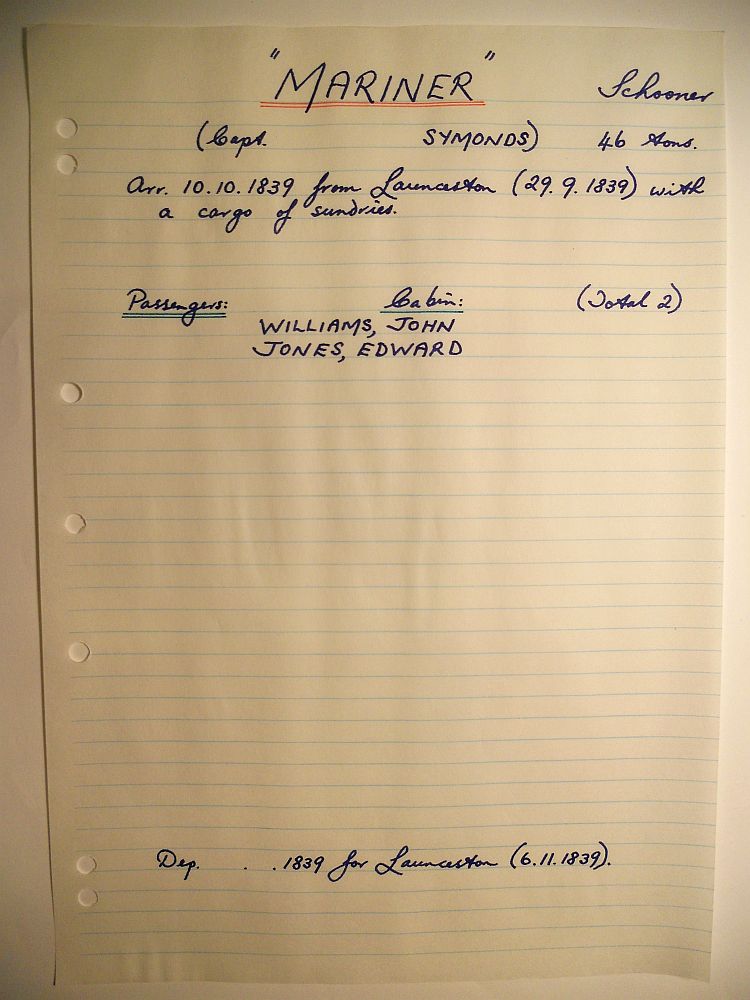 "MARINER" Schooner
(Capt. SYMONDS) 46 tons.
Arr. 10.10.1839 from Launceston (29.9.1839) with
a cargo of sundries.
Passengers: Cabin: (Total 2)
WILLIAMS, JOHN
JONES, EDWARD
Dep. . .1839 for Launceston (6.11.1839).